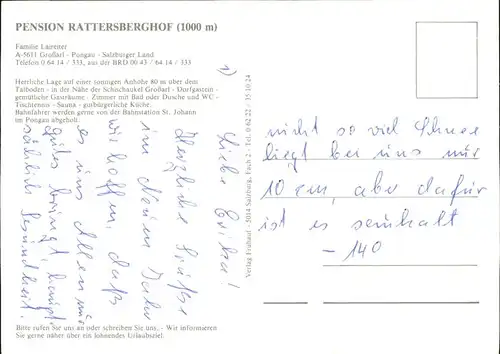 PENSION RATTERSBERGHOF (1000 m)
Familie Laireiter
A-5611 Großarl - Pongau - Salzburger Land
Telefon 0 64 14 / 333, aus der BRD 00 43 / 64 14 / 333
Herrliche Lage auf einer sonnigen Anhöhe 80 m über dem
Talboden - in der Nähe der Schischaukel Großarl - Dorfgastein -
gemütliche Gasträume - Zimmer mit Bad oder Dusche und WC -
Tischtennis - Sauna - gutbürgerliche Küche.
Bahnfahrer werden gerne von der Bahnstation St. Johann
im Pongau abgeholt.
Bitte rufen Sie uns an oder schreiben Sie uns. - Wir informieren
Sie gerne näher über ein lohnendes Urlaubsziel.
Verlag Fruhauf - 5014 Salzburg, Fach 2 - Tel. 0 62 22 / 35 10 24
1)
Liebe Erika!
Herzliche Grüße
im Neuen Jahr
wir hoffen, daß
es uns Allen nur
gutes bringt haupt
sächlich Gesundheit.
nicht so viel Schnee
liegt bei uns nur
10 cm, aber dafür
ist es saukalt
- 14°